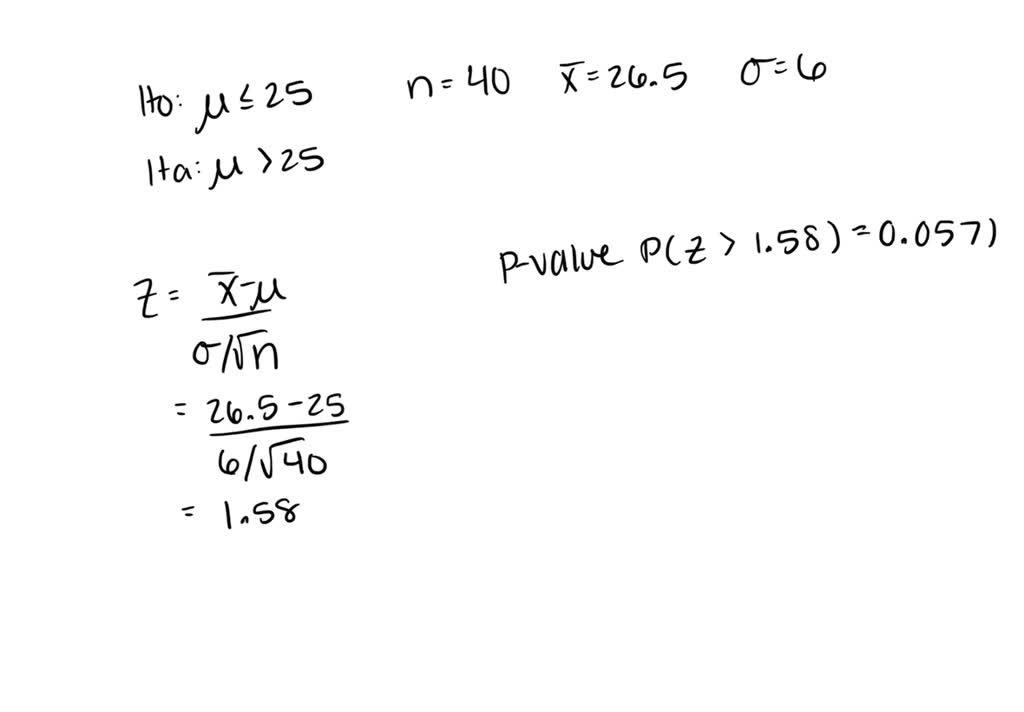 Ho: μ ≤ 25 n = 40 x̄ = 26.5 σ = 6
Ha: μ > 25
p-value P(z > 1.58) = 0.0571
z = x̄-μ
σ/√n
= 26.5 - 25
6/√40
= 1.58